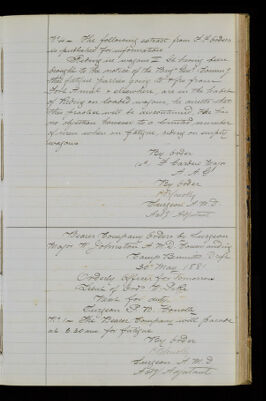 No 4 - The following extract from F. F. Orders
is published for information
Riding in wagons II It having been
brought to the notice of the Brig. Genl. Comng.
that fatigue parties going to & fro from
Fort Amiel & elsewhere, are in the habit
of riding on loaded wagons, he directs that
this practice will be discontinued. He has
no objection however to a limited number
of men when on fatigue, riding on empty
wagons
By order
Major
A. A. G.
By order
Surgeon A. M. D.
Adj. Adjutant
Bearer Company Orders by Surgeon
Major W. Johnston A. M. D. Commanding
Camp Bennetts Drift
30th May 1881
Orderly Officer for tomorrow
Next for duty
Surgeon
No 1 - The Bearer Company will parade
at 6.30 am for fatigue
By order
Surgeon A. M. D
Adj. Adjutant